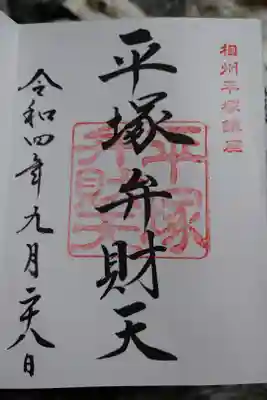 相州平塚鎮座
平塚弁財天
平塚弁財天
令和四年九月二十八日